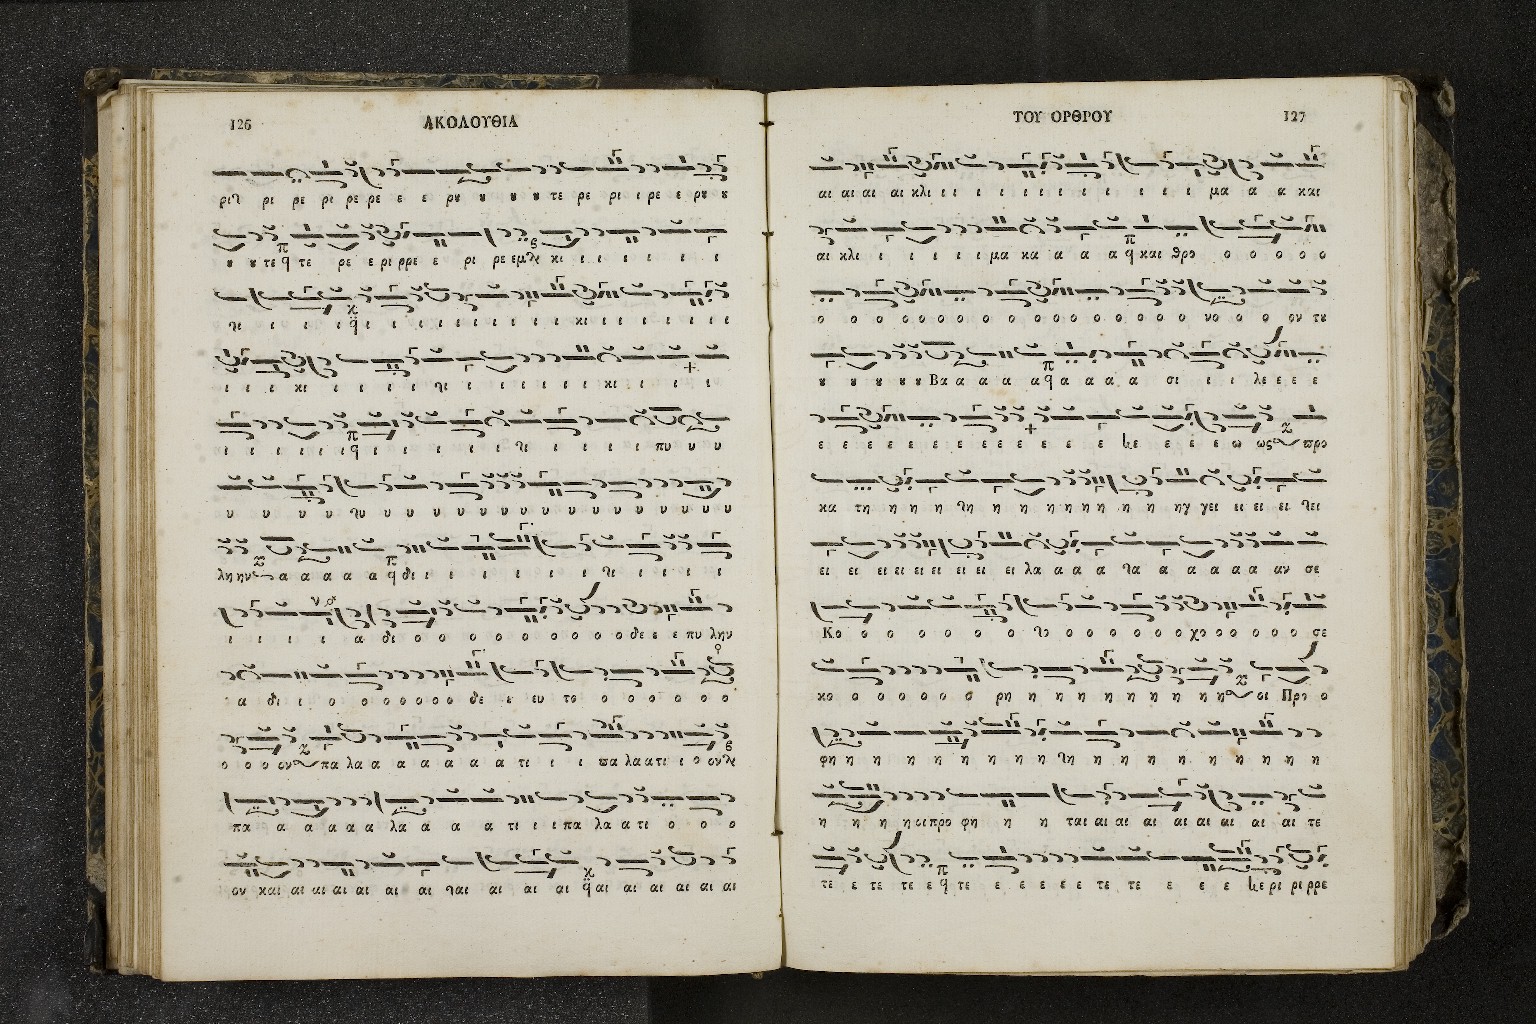 126
ΑΚΟΛΟΥΘΙΑ
ρι ρι ρε ρι ρε ρε ε ε ρυ υ υ υ τε ρε ρι ι ρε ε ρυ υ
υ υ τε τε ρε ε ρι ρρε ε ρι ρε εμ κι ι ι ι ι ι ι
ι ι ι ι ι ι ι ι ι ι ι ι ι κι ι ι ι ι ι ι
ι ι ι κι ι ι ι ι ι ι ι ι ι ι κι ι ι ι
ι ι ι ι ι ι ι ι ι ι ι ι ι ι ι πυ υ υ
υ υ υ υ υ υ υ υ υ υ υ υ υ υ υ υ υ υ υ υ
λη ην α α α α α δι ι ι ι ι ι ι ι ι ι ι
ι ι ι ι ι α δι ο ο ο ο ο ο ο ο ο ο δε ε ε πυ λην
α δι ι ο ο ο ο ο ο ο δε ε ευ το ο ο ο ο ο ο
ο ο ο ον πα λα α α α α α α τι ι ι πα λα α τι ι ο ον
πα α α α α α λα α α α α τι ι ι πα λα α τι ο ο ο
ον και αι αι αι αι αι αι αι αι αι αι αι αι αι αι αι αι
ΤΟΥ ΟΡΘΡΟΥ
127
αι αι αι αι κλι ι ι ι ι ι ι ι ι ι ι ι μα α α και
αι κλι ι ι ι ι ι μα κα α α α και θρο ο ο ο ο ο
ο ο ο ο ο ο ο ο ο ο ο ο ο ο ο ο νο ο ο ον τυ
υ υ υ υ υ Βα α α α α α α α α σι ι ι λε ε ε ε
ε ε ε ε ε ε ε ε ε ε ε ε ε ε ε ε ω ως προ
κα τη η η η η η η η η η η η ηγ γει ει ει ει ει
ει ει ει ει ει ει ει ει ει λα α α α α α α α α α αν σε
Κο ο ο ο ο ο ο ο ο ο ο ο ο ο ο χο ο ο ο ο σε
κο ο ο ο ο ο ο ρη η η η η η η η η η οι Προ ο
φη η η η η η η η η η η η η η η η η η η
η η η η οι προ φη η η ται αι αι αι αι αι αι αι αι τε
τε ε τε τε ε τε ε ε ε ε ε τε τε ε ε ε ε ρι ρι ρρε